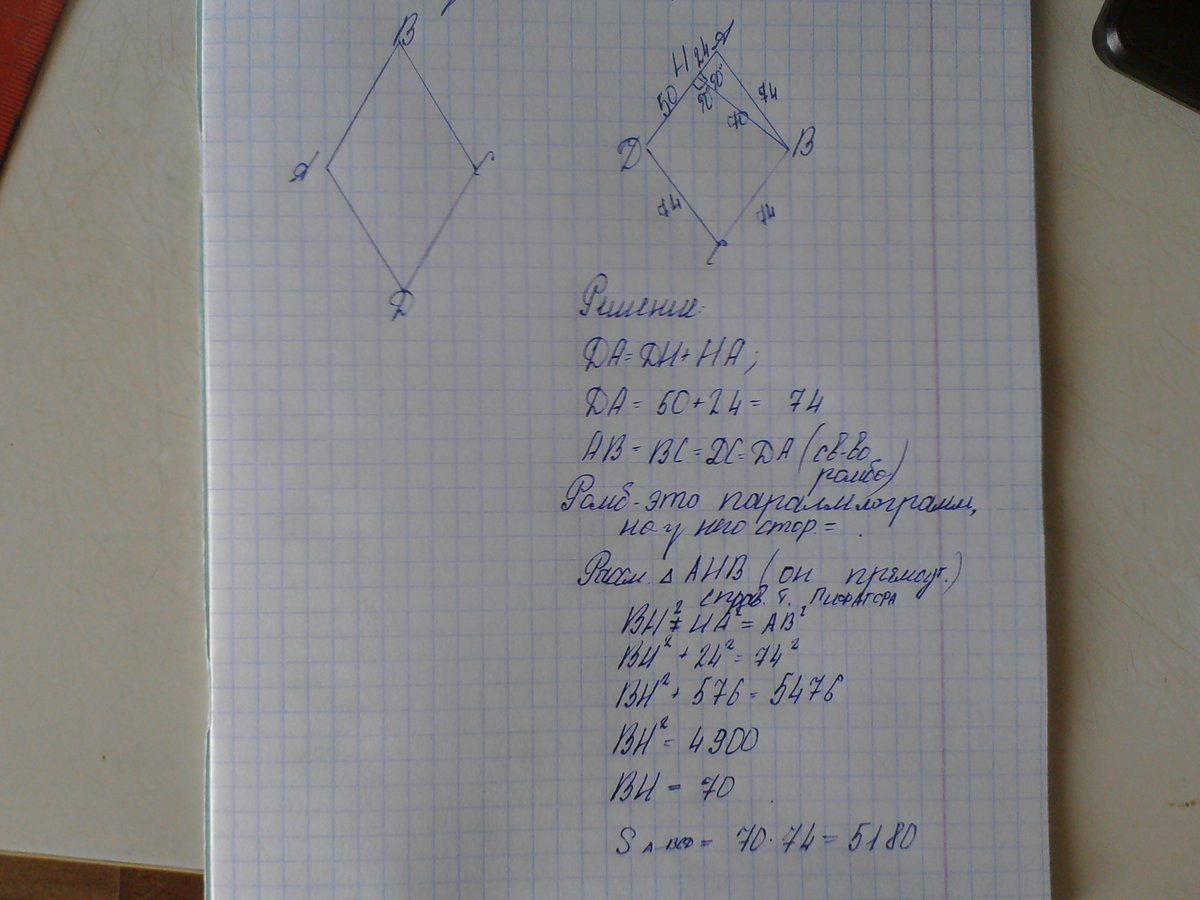 B
A
C
D
A
24
H
50
90°
90°
74
70
D
B
74
74
C
Решение:
DA = DH + HA;
DA = 50 + 24 = 74
AB = BC = DC = DA (св-во
ромба)
Ромб - это параллелограмм,
но у него стор. =
Рассм. △ AHB (он прямоуг.)
справ. т. Пифагора
BH² + HA² = AB²
BH² + 24² = 74²
BH² + 576 = 5476
BH² = 4900
BH = 70
S ABCD = 70 · 74 = 5180